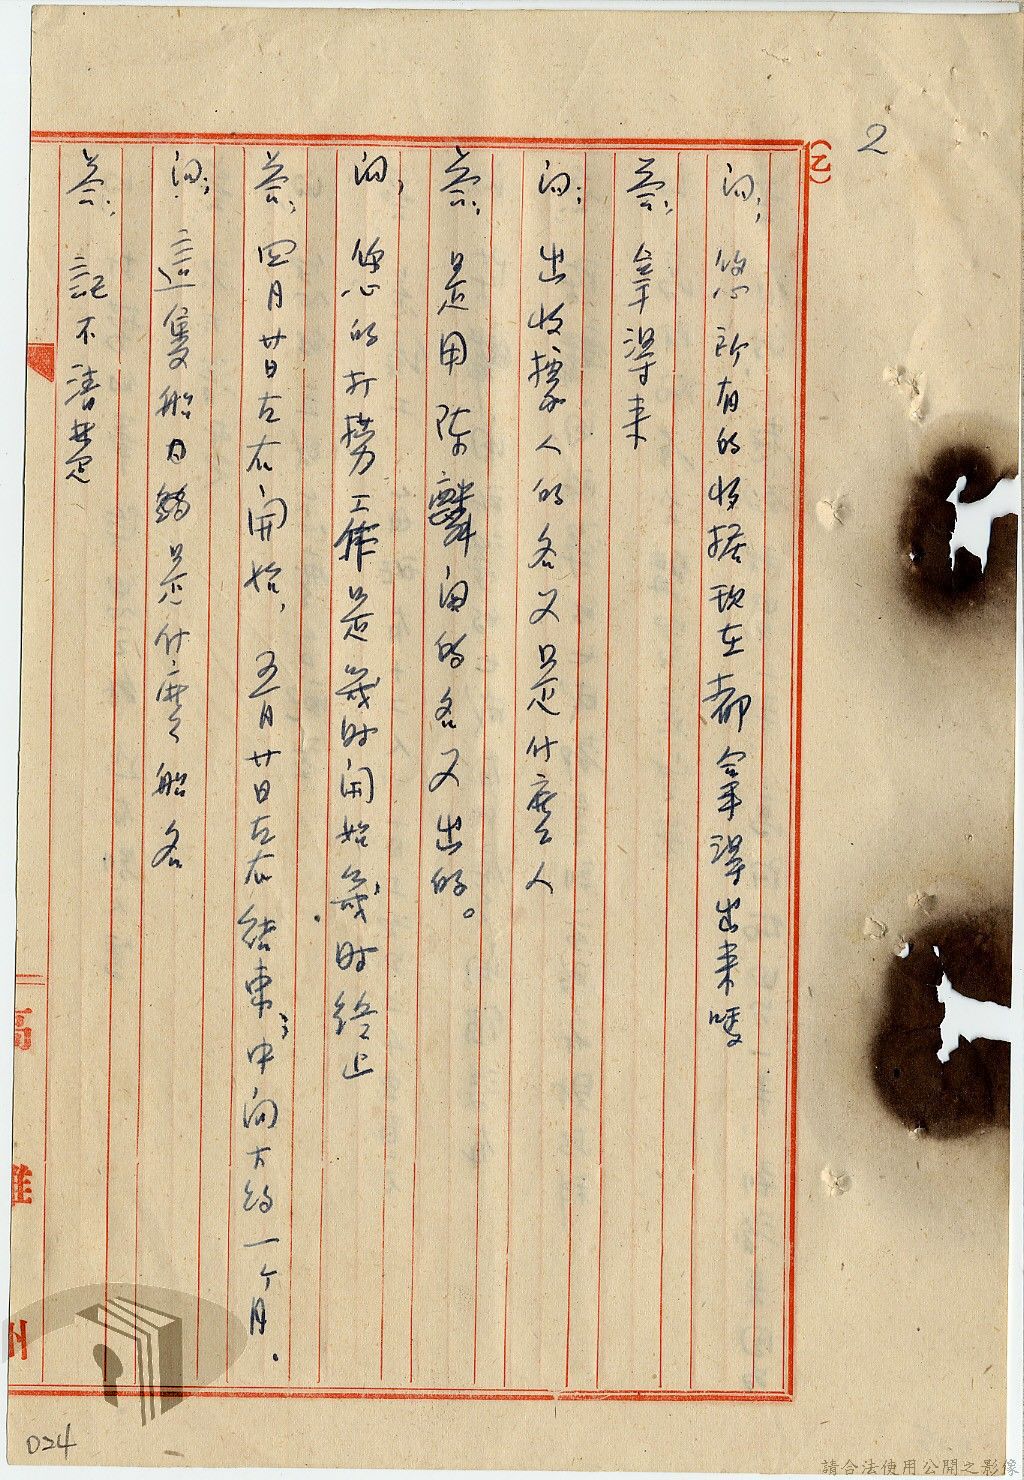 2
(乙)
问: 您所有的收据现在都拿得出来嗎
荅: 拿得来
问: 出收据人的名义是什麽人
荅: 是用陈麟润的名义出的。
问: 您的打撈工作是幾时開始幾时终止
荅: 四月廿日左右開始, 五月廿日左右结束, 中间大约一个月.
问: 這隻船日鶴是什麽船名
荅: 記不清楚
高
雄
州
024
請合法使用公開之影像